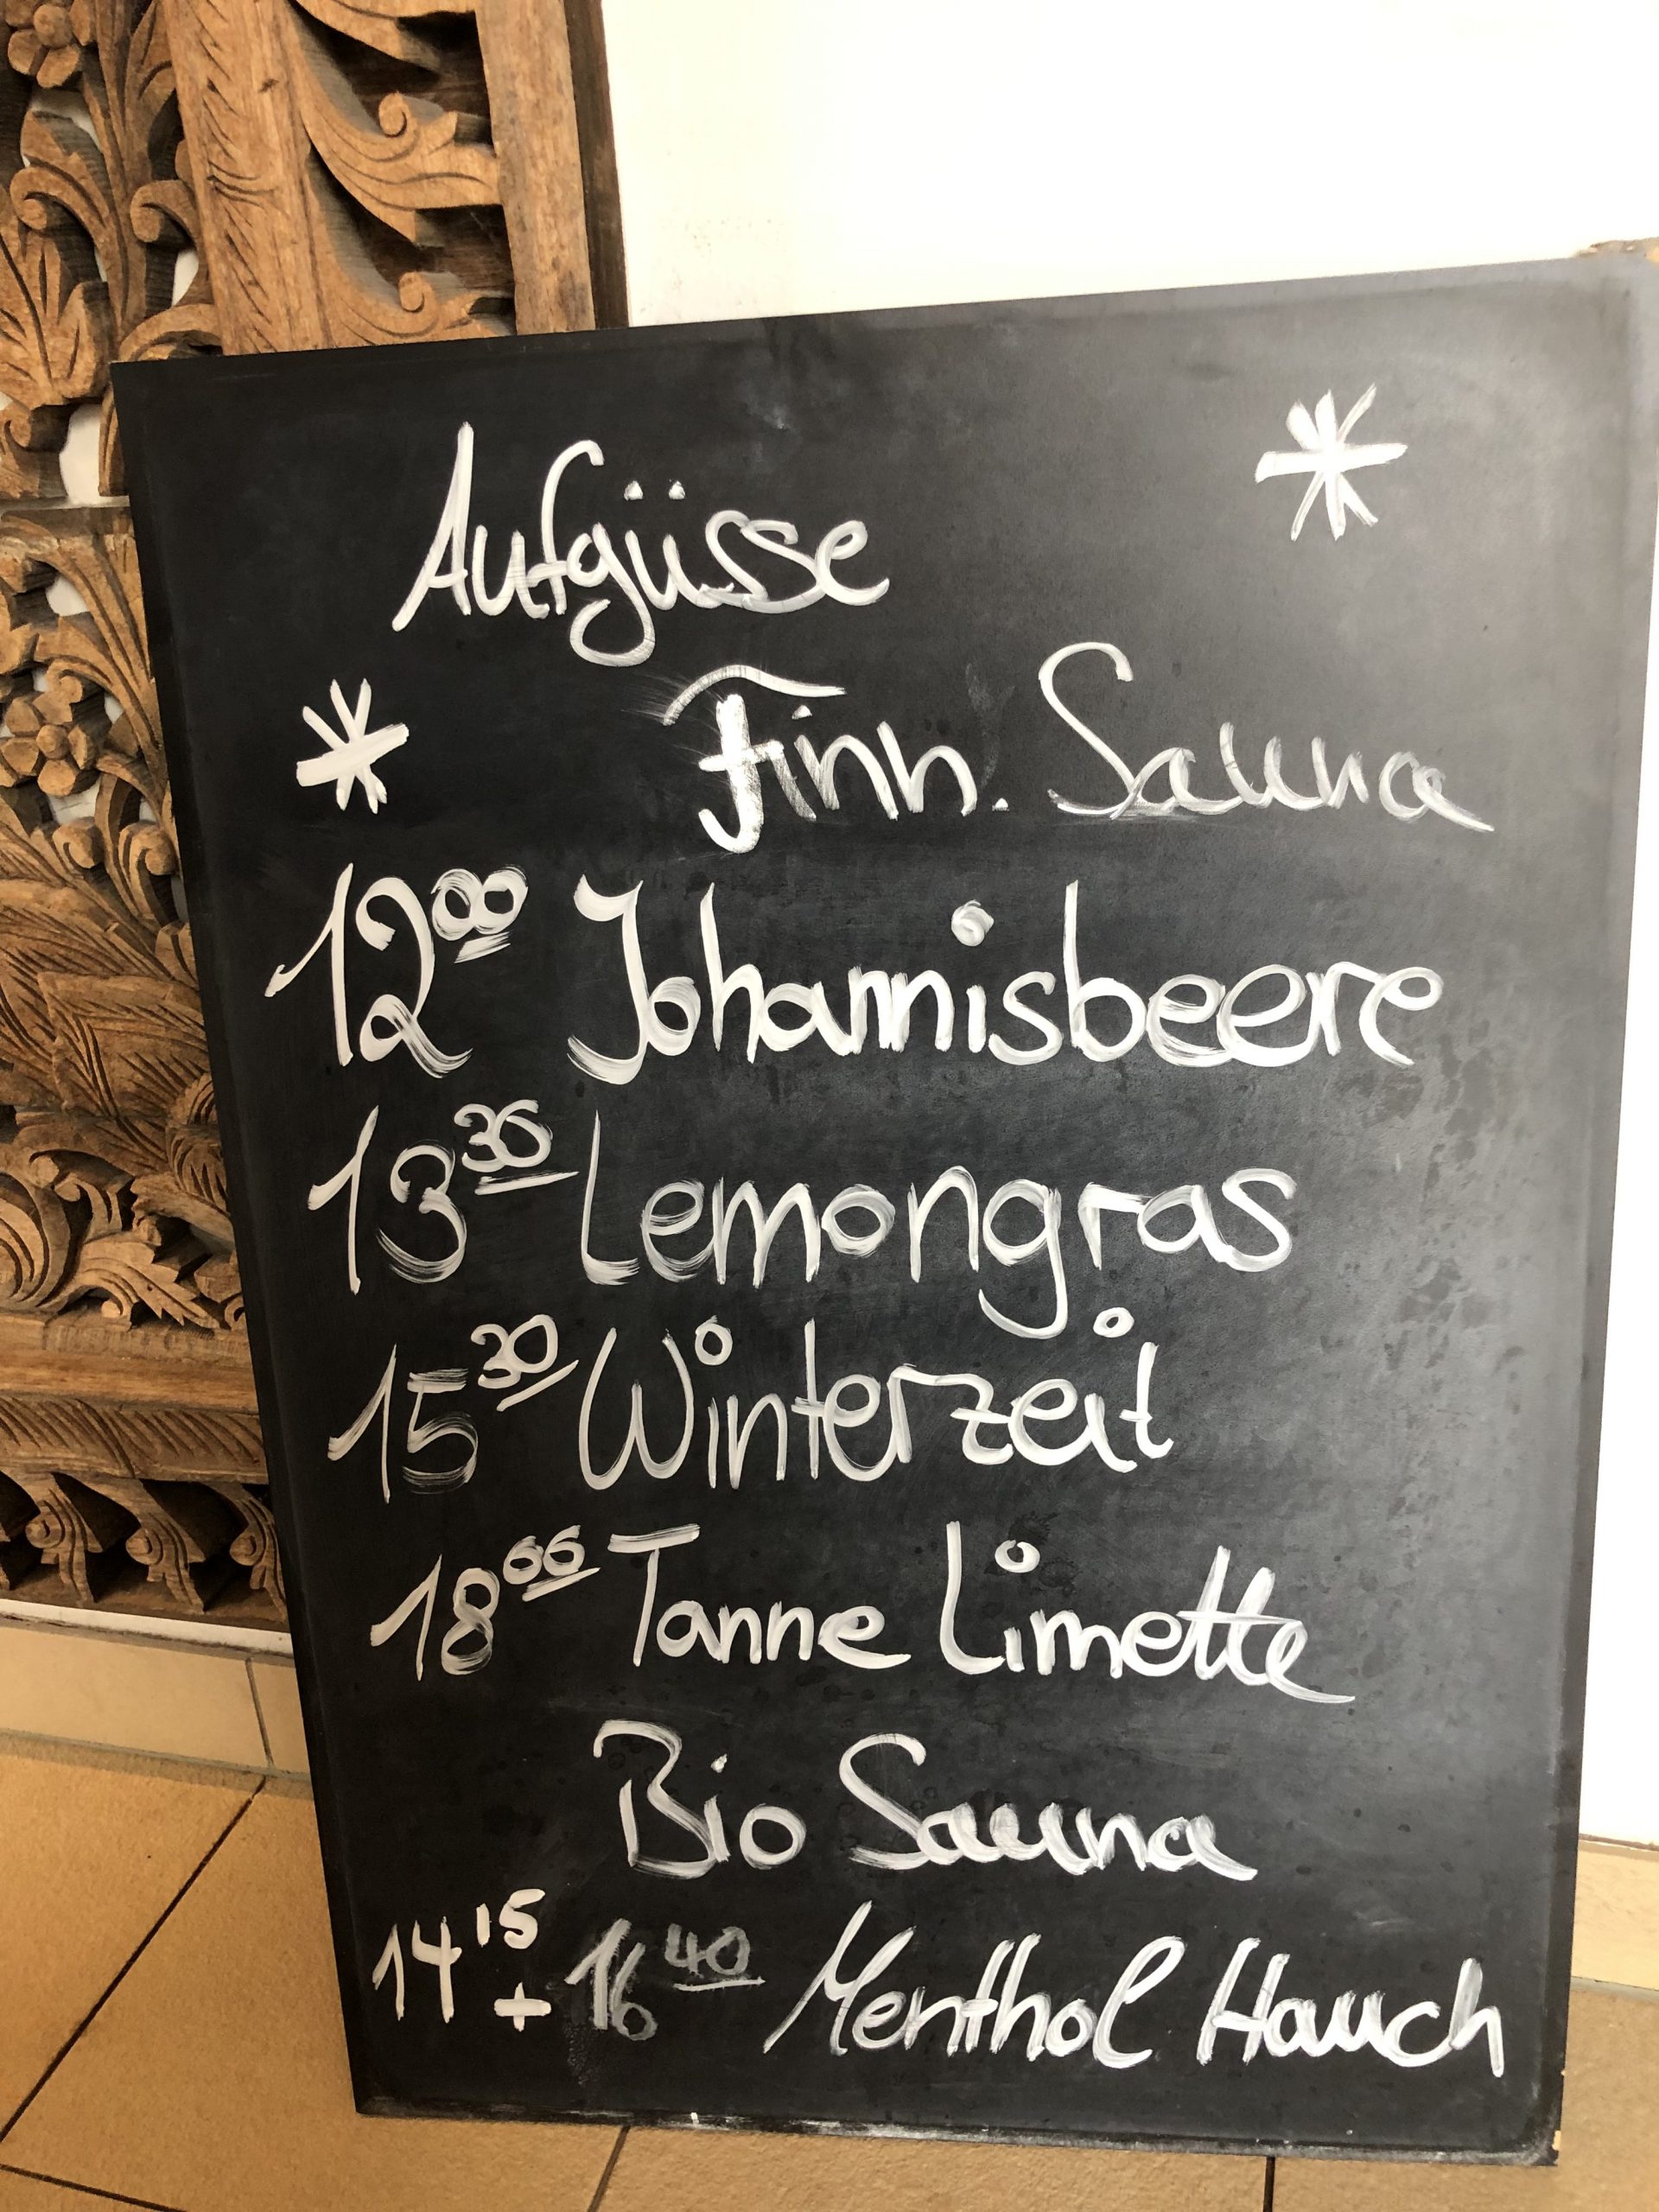 Aufgüsse
Finn. Sauna
12 00 Johannisbeere
13 30 Lemongras
15 30 Winterzeit
18 00 Tanne Limette
Bio Sauna
14 15 + 16 40 Menthol Hauch